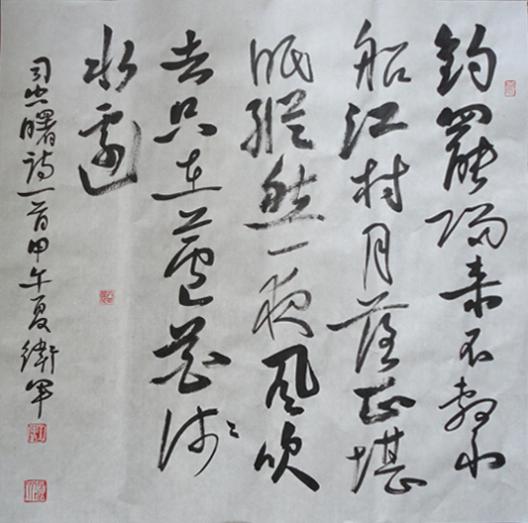 釣罷歸来不繫
船江村月落正堪
眠縱然一夜風吹
去只在蘆花浅
水邊
司空曙詩一首甲午夏衛軍